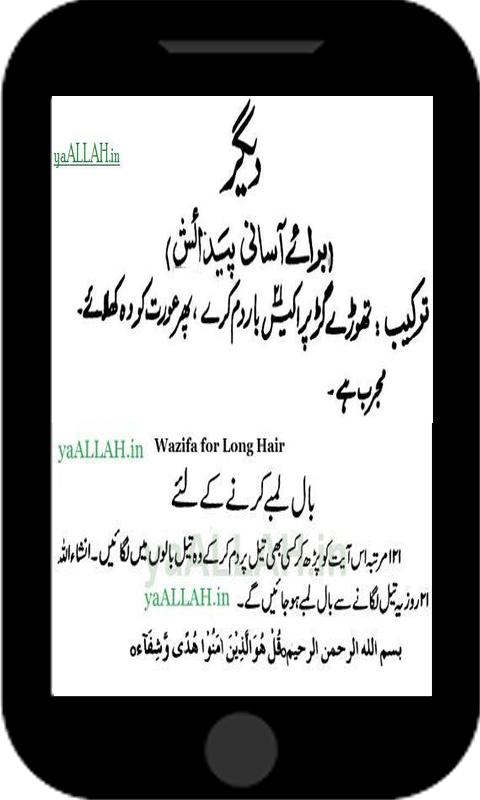 yaALLAH.in
دیگر
(برائے آسانی پیدائش)
ترکیب : تھوڑے گڑ پر اکیس۲۱ بار دم کرے ، پھر عورت کو وہ کھلائے۔
مجرب ہے۔
yaALLAH.in Wazifa for Long Hair
بال لمبے کرنے کے لئے
۱۲۱ مرتبہ اس آیت کو پڑھ کر کسی بھی تیل پر دم کر کے وہ تیل بالوں میں لگائیں۔ انشاء اللہ
yaALLAH.in
۲۱ روز یہ تیل لگانے سے بال لمبے ہو جائیں گے۔ yaALLAH.in
بسم الله الرحمن الرحيم٥قُلْ هُوَ الَّذِيْنَ اٰمَنُوْا هُدًى وَّشِفَآء٥